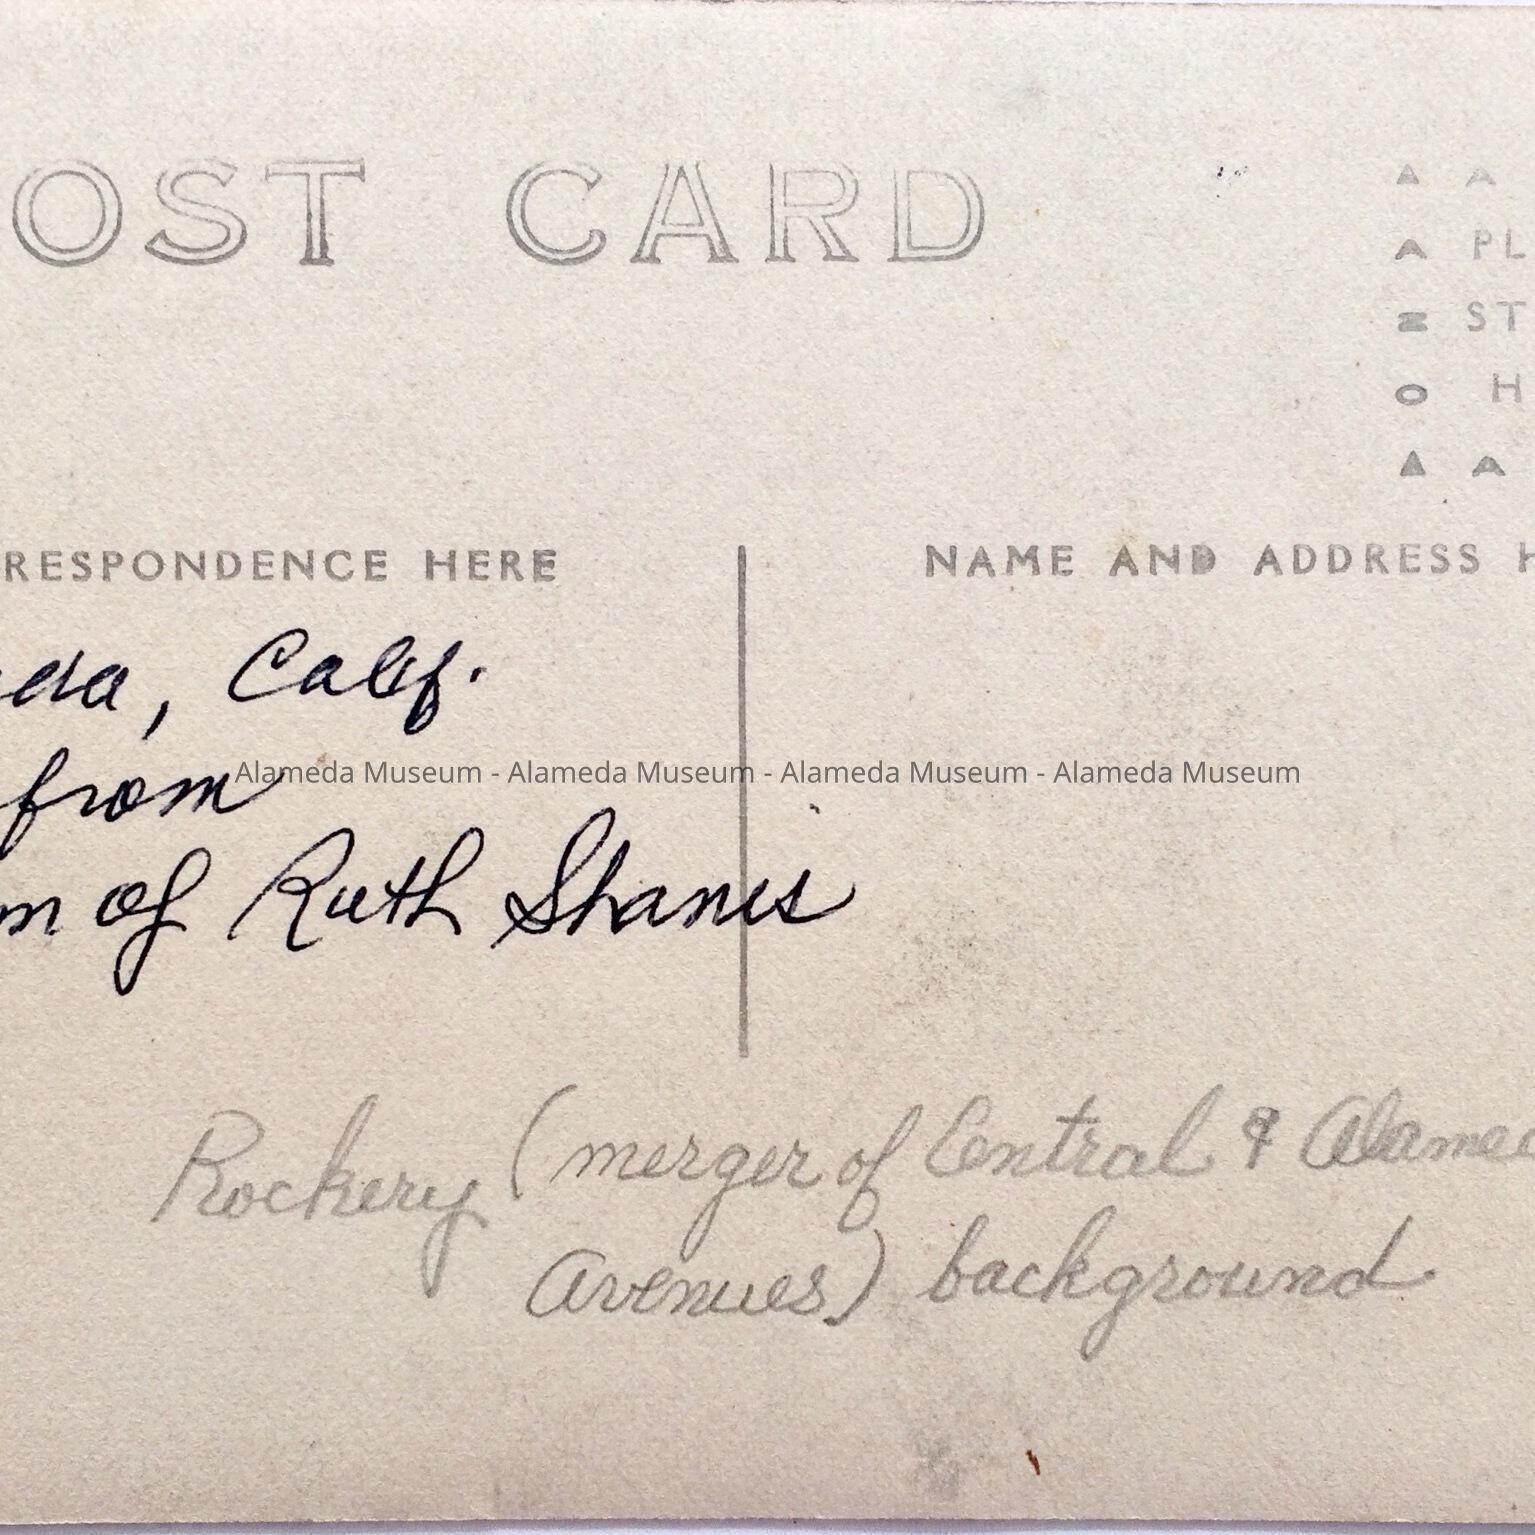 OST CARD
PL
ST
H
RESPONDENCE HERE
NAME AND ADDRESS H
eda, Calif.
from
Alameda Museum - Alameda Museum - Alameda Museum - Alameda Museum
n of Ruth
Rockery (merger of Central & Alamed
Avenues) background